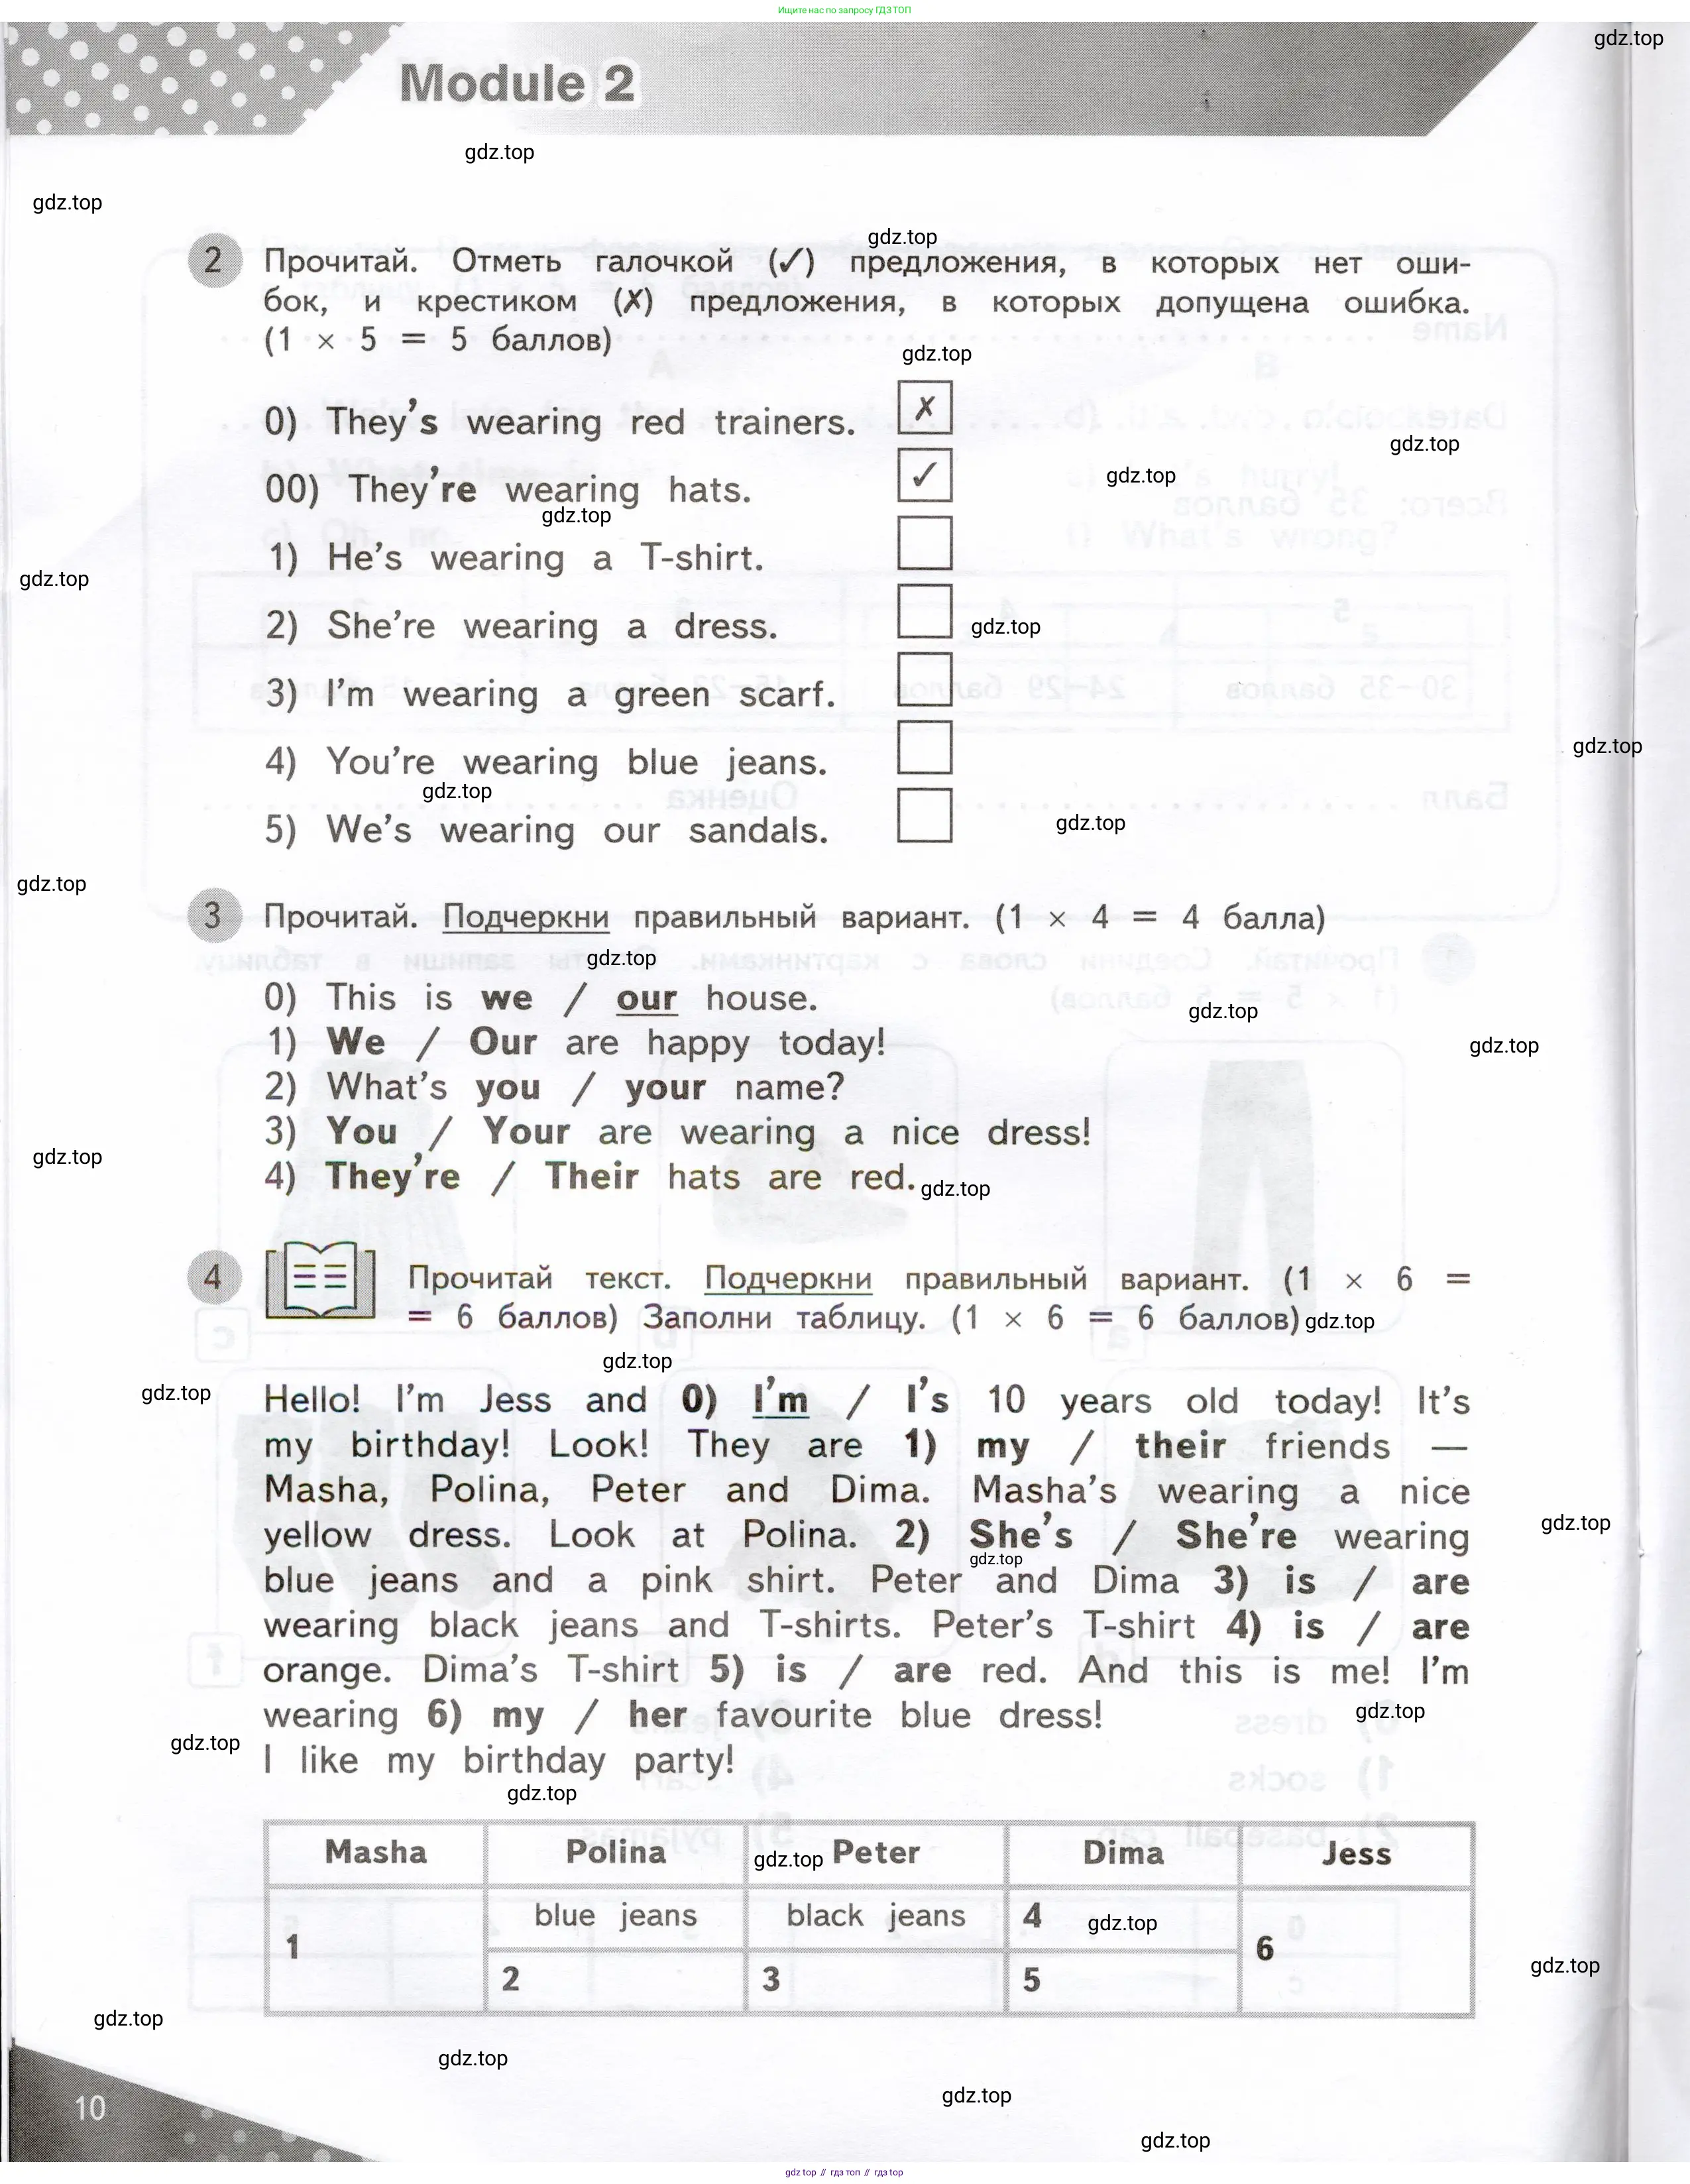 Ищите нас по запросу ГДЗ ТОП
gdz.top
Module 2
gdz.top
gdz.top
gdz.top
2 Прочитай. Отметь галочкой (✓) предложения, в которых нет оши-
бок, и крестиком (✗) предложения, в которых допущена ошибка.
(1 × 5 = 5 баллов)
gdz.top
0) They's wearing red trainers. ✗
gdz.top
00) They're wearing hats. ✓
gdz.top
gdz.top
1) He's wearing a T-shirt.
gdz.top
2) She're wearing a dress.
gdz.top
3) I'm wearing a green scarf.
gdz.top
4) You're wearing blue jeans.
gdz.top
gdz.top
5) We's wearing our sandals.
gdz.top
3 Прочитай. Подчеркни правильный вариант. (1 × 4 = 4 балла)
gdz.top
0) This is we / our house.
gdz.top
1) We / Our are happy today!
gdz.top
2) What's you / your name?
3) You / Your are wearing a nice dress!
gdz.top
4) They're / Their hats are red.
gdz.top
4 Прочитай текст. Подчеркни правильный вариант. (1 × 6 =
= 6 баллов) Заполни таблицу. (1 × 6 = 6 баллов)
gdz.top
gdz.top
gdz.top
Hello! I'm Jess and 0) I'm / I's 10 years old today! It's
my birthday! Look! They are 1) my / their friends —
Masha, Polina, Peter and Dima. Masha's wearing a nice
yellow dress. Look at Polina. 2) She's / She're wearing
gdz.top
gdz.top
blue jeans and a pink shirt. Peter and Dima 3) is / are
wearing black jeans and T-shirts. Peter's T-shirt 4) is / are
orange. Dima's T-shirt 5) is / are red. And this is me! I'm
wearing 6) my / her favourite blue dress!
gdz.top
gdz.top
I like my birthday party!
gdz.top
Masha Polina Peter Dima Jess
gdz.top
blue jeans black jeans 4
gdz.top
1 6
gdz.top
2 3 5
gdz.top
gdz.top
gdz.top
10
gdz.top
gdz top // гдз топ // гдз top